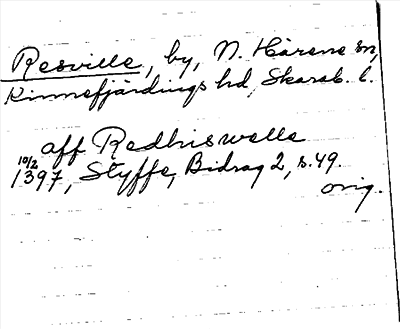 Resville, by, N. Härene sn,
Kinnefjärdings hd, Skarab. l.
aff Redhiswelle
10/2 1397, Styffe, Bidrag 2, s. 49.
orig.